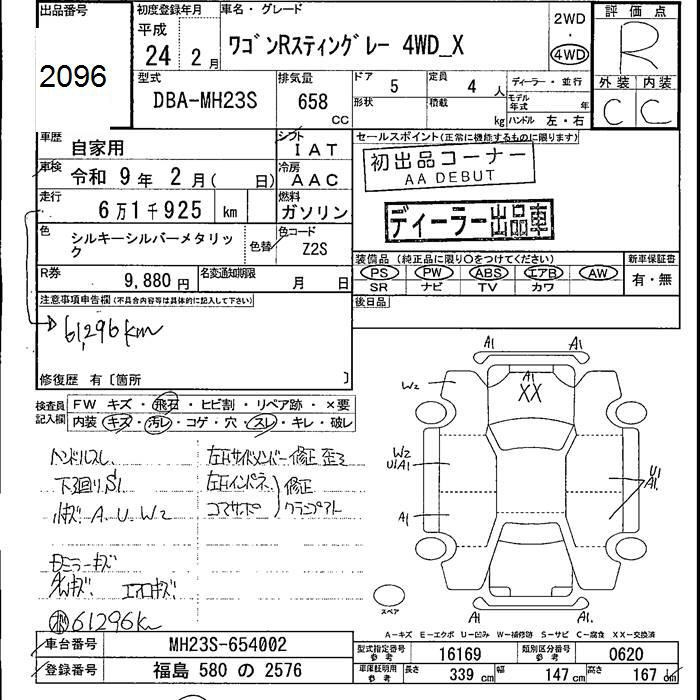 出品番号
2096
初度登録年月
平成
24 2月
車名・グレード
ワゴンRスティングレー 4WD_X
2WD
・
4WD
評価点
R
外装 内装
C C
型式
DBA-MH23S
排気量
658
CC
ドア
5
定員
4 人
ディーラー・並行
形状
積載
kg
モデル年式 年
ハンドル 左・右
車歴
自家用
シフト
IAT
車検
令和 9年 2月( 日)
冷房
AAC
走行
6万1千925 km
燃料
ガソリン
色
シルキーシルバーメタリック
色替
色コード
Z2S
R券
9,880円
名変通知期限
月 日
セールスポイント(正常に機能するものに限ります)
初出品コーナー
AA DEBUT
ディーラー出品車
装備品(純正品に限り○をつけてください)
PS PW ABS エアB AW
SR ナビ TV カワ
新車保証書
有・無
後日品
注意事項申告欄(不具合内容等は具体的に記入して下さい)
61,296km
修復歴 有〔箇所 〕
検査員記入欄
FW キズ・飛石・ヒビ割・リペア跡・×要
内装 キズ・汚レ・コゲ・穴・スレ・キレ・破レ
ハンドルスレ
下廻りS1
小キズ A、U、W2
左右サイドメンバー修正 歪ミ
左右インパネ 修正
コアサポ クランプアト
ミラーキズ
エアロキズ
61296km
A1 A1
A1
XX
W2
W2
U1A1
A1
U1
A1
A1 A1
スペア
A−キズ E−エクボ U−凹み W−補修跡 S−サビ C−腐食 XX−交換済
車台番号
MH23S-654002
登録番号
福島 580 の 2576
型式指定番号
参考
16169
類別区分番号
参考
0620
車庫証明用
参考
長さ 339 cm
幅 147 cm
高さ 167 cm